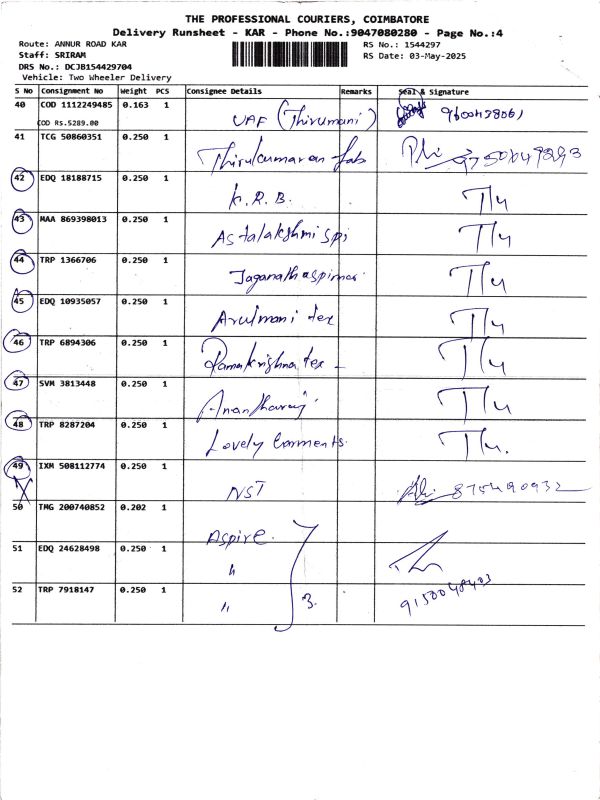 THE PROFESSIONAL COURIERS, COIMBATORE
Delivery Runsheet - KAR - Phone No.:9047080280 - Page No.:4
Route: ANNUR ROAD KAR
RS No.: 1544297
Staff: SRIRAM
RS Date: 03-May-2025
DRS No.: DCJB154429704
Vehicle: Two Wheeler Delivery
S No Consignment No Weight PCS Consignee Details Remarks Seal & Signature
40 COD 1112249485 0.163 1 UAF (Thirumani)
COD RS.5289.00
41 TCG 50860351 0.250 1 Thirukumaran fab
42 EDQ 18188715 0.250 1 K.R.B.
43 MAA 869398013 0.250 1 Astalakshmi spi
44 TRP 1366706 0.250 1
45 EDQ 10935057 0.250 1 Arulmani tex
46 TRP 6894306 0.250 1 Ramakrishna tex
47 SVM 3813448 0.250 1 Anantharaj
48 TRP 8287204 0.250 1 Lovely Garments.
49 IXM 508112774 0.250 1 NST
50 TMG 200740852 0.202 1 Aspire
51 EDQ 24628498 0.250 1 "
52 TRP 7918147 0.250 1 " 3. 9150048403